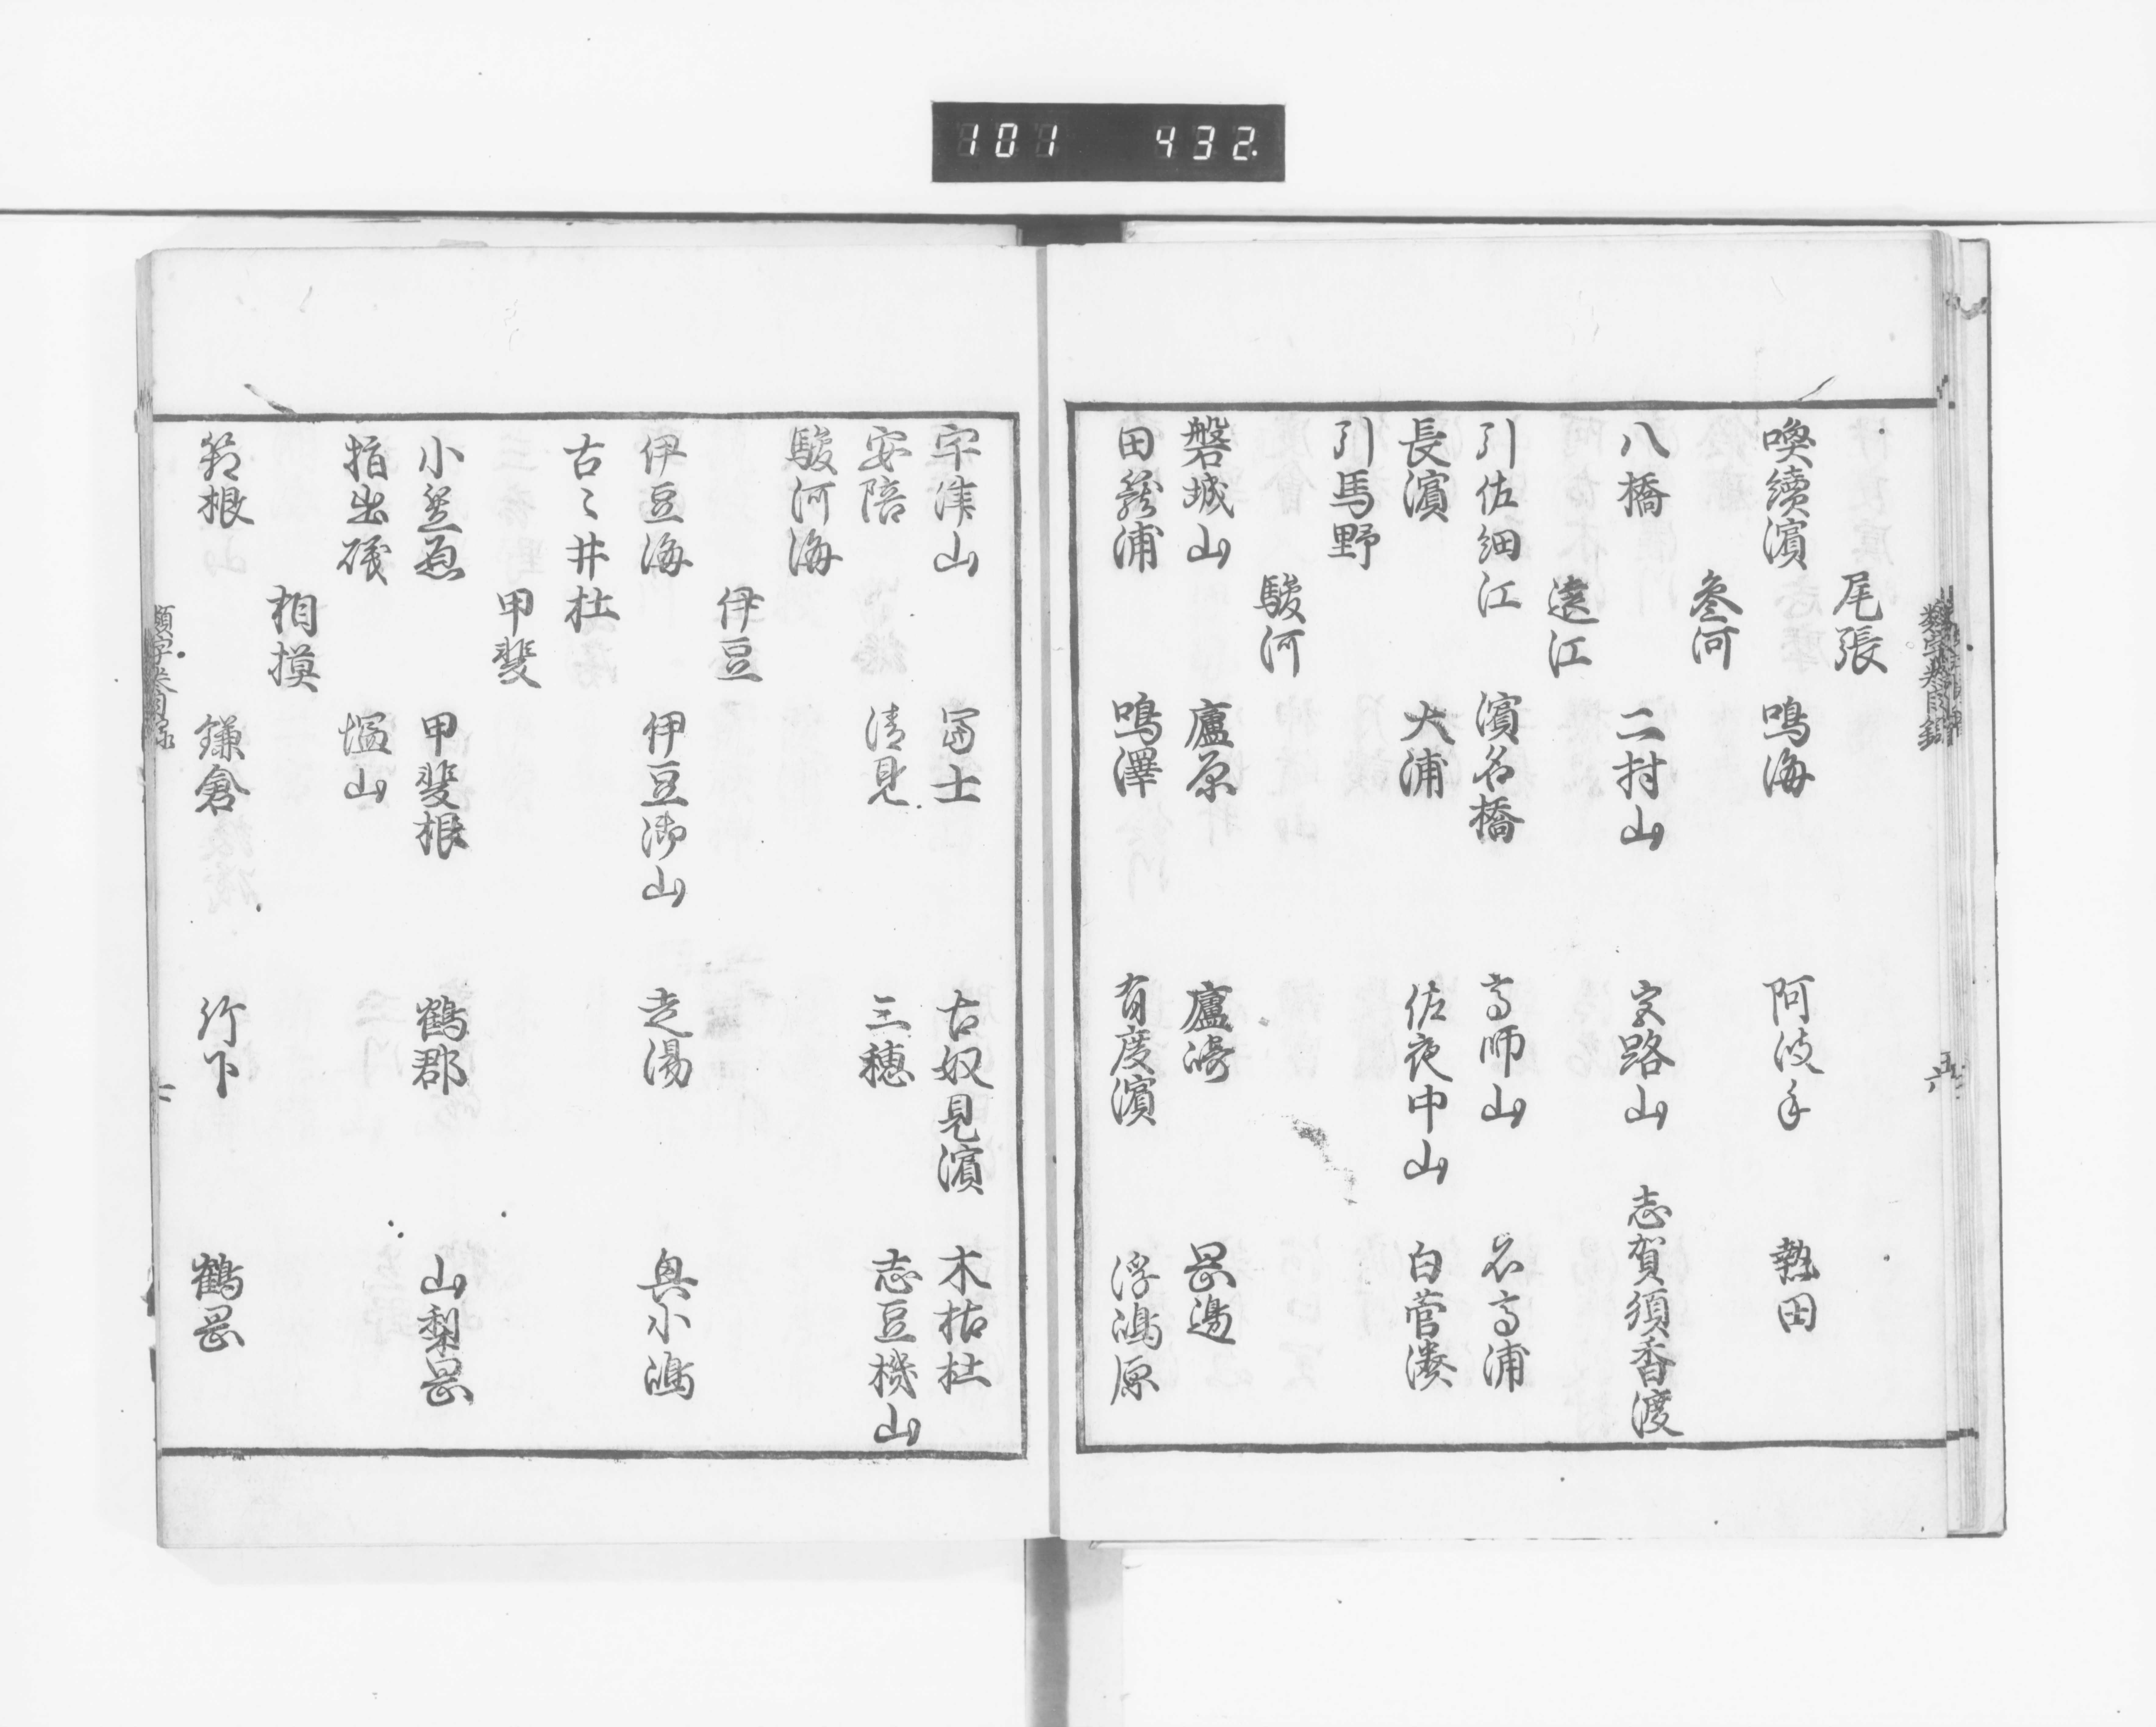 101 432
尾張
喚續濱 鳴海 阿波手 熱田
叄河
八橋 二村山 宮路山 志賀須香渡
遠江
引佐細江 濱名橋 高師山 名高浦
長濱 大浦 佐夜中山 白菅湊
引馬野
駿河
磐城山 廬原 廬崎 岡邊
田籠浦 鳴澤 有度濱 浮嶋原
宇津山 冨士 古奴見濱 木枯杜
安陪 清見 三穂 志豆機山
駿河海
伊豆
伊豆海 伊豆御山 走湯 奥小嶋
古々井杜
甲斐
小笠原 甲斐根 鶴郡 山梨岡
指出礒 塩山
相摸
筥根 鎌倉 竹下 鶴岡